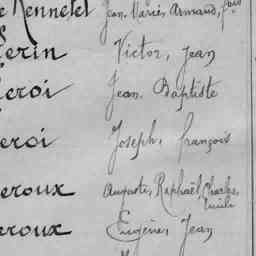 e Kennelel Jean Marie Armand, fois
erin Victor, Jean
eroi Jean Baptiste
eroi Joseph, françois
eroux Auguste, Raphaël Charles Emile
eroux Eugène, Jean